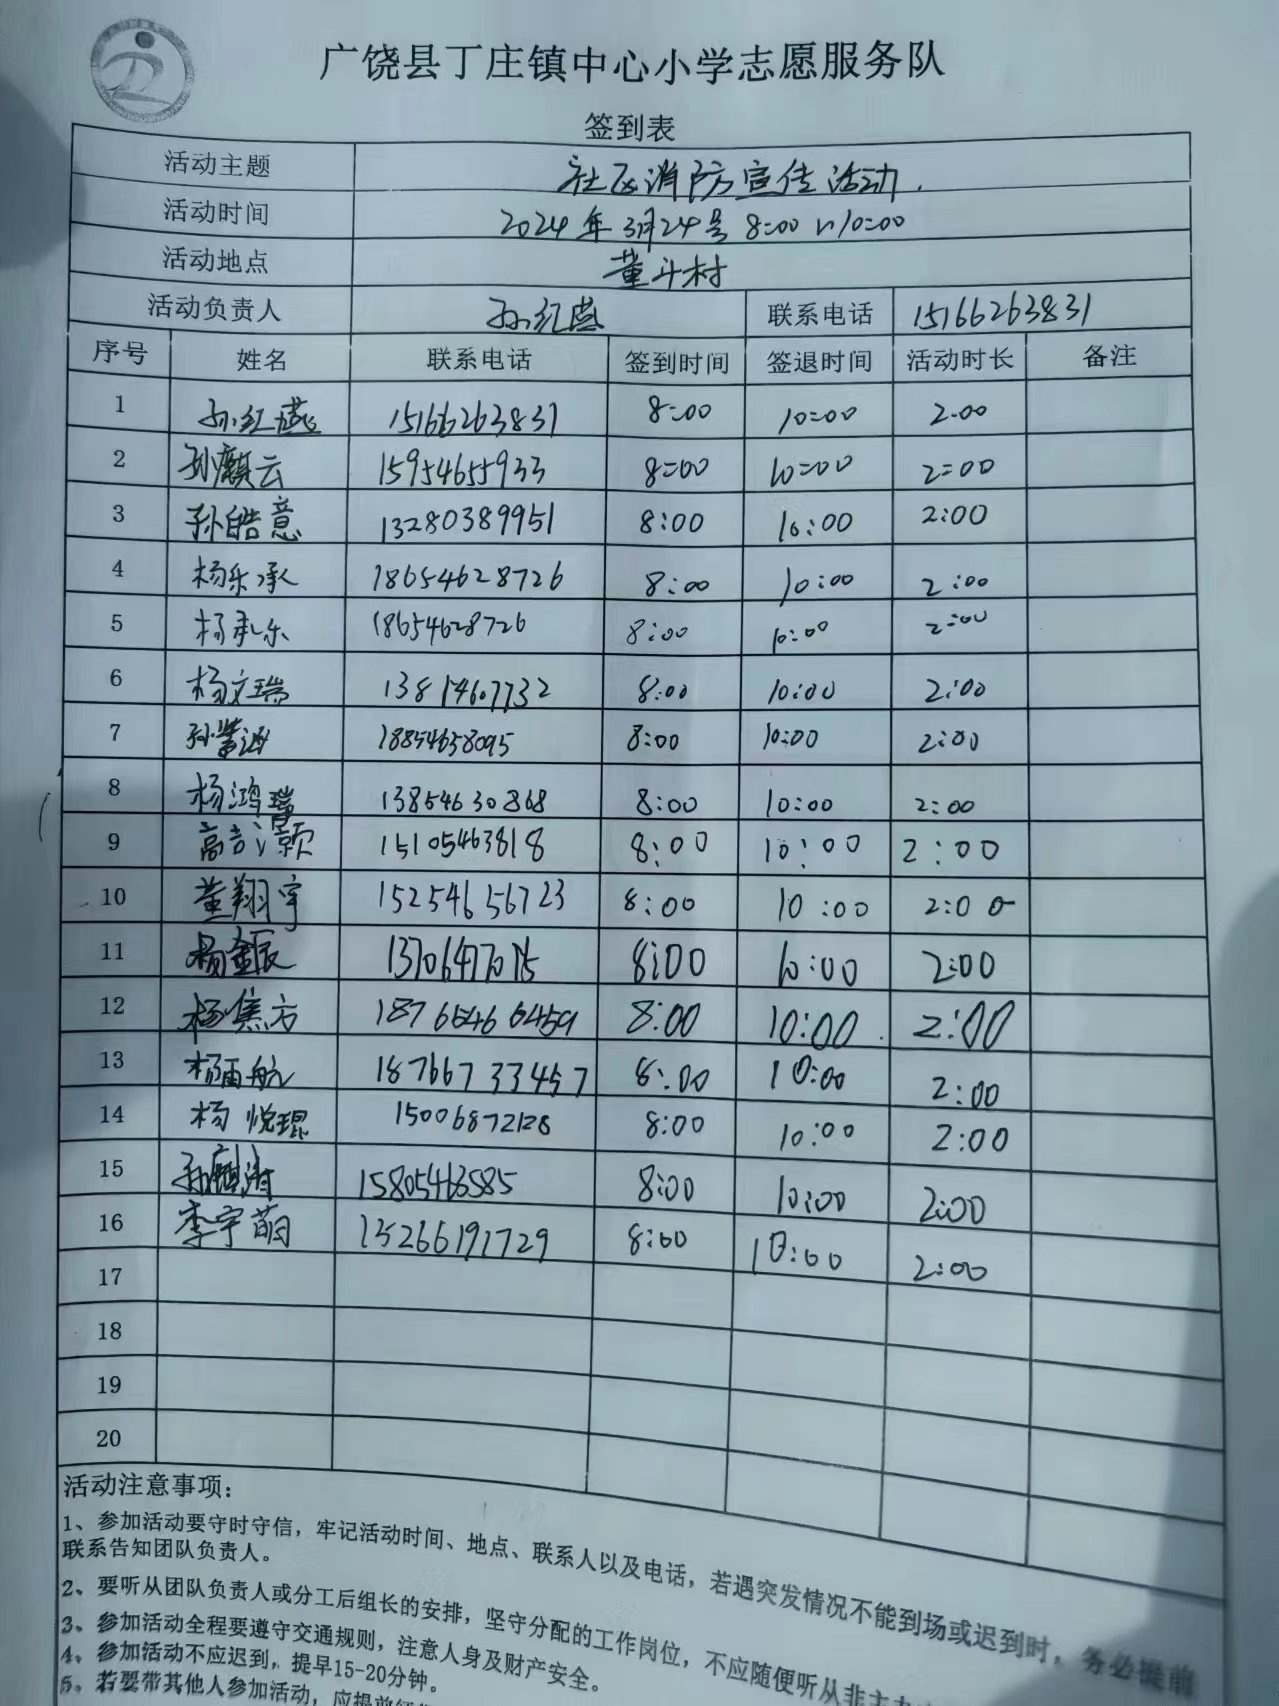 广饶县丁庄镇中心小学志愿服务队
签到表
活动主题 社区消防宣传活动.
活动时间 2024年3月24号 8:00~10:00
活动地点 董斗村
活动负责人 孙红燕 联系电话 15166263831
序号 姓名 联系电话 签到时间 签退时间 活动时长 备注
1 孙红燕 15166263831 8:00 10:00 2:00
2 孙麒云 15954655933 8:00 10:00 2:00
3 孙皓意 13280389951 8:00 10:00 2:00
4 杨乐承 18654628726 8:00 10:00 2:00
5 杨承乐 18654628726 8:00 10:00 2:00
6 杨文瑞 13814607732 8:00 10:00 2:00
7 18854658095 8:00 10:00 2:00
8 杨鸿瑞 13854630868 8:00 10:00 2:00
9 高吉灏 15105463818 8:00 10:00 2:00
10 董翔宇 15254656723 8:00 10:00 2:00
11 杨金辰 8:00 10:00 2:00
12 杨焦方 18766466459 8:00 10:00 2:00
13 杨雨航 18766733457 8:00 10:00 2:00
14 杨悦琨 15006872128 8:00 10:00 2:00
15 15805463585 8:00 10:00 2:00
16 李宇萌 15266191729 8:00 10:00 2:00
17
18
19
20
活动注意事项：
1、参加活动要守时守信，牢记活动时间、地点、联系人以及电话，若遇突发情况不能到场或迟到时，务必提前
联系告知团队负责人。
2、要听从团队负责人或分工后组长的安排，坚守分配的工作岗位，不应随便听从非主
3、参加活动全程要遵守交通规则，注意人身及财产安全。
4、参加活动不应迟到，提早15-20分钟。
5、若要带其他人参加活动，应提前